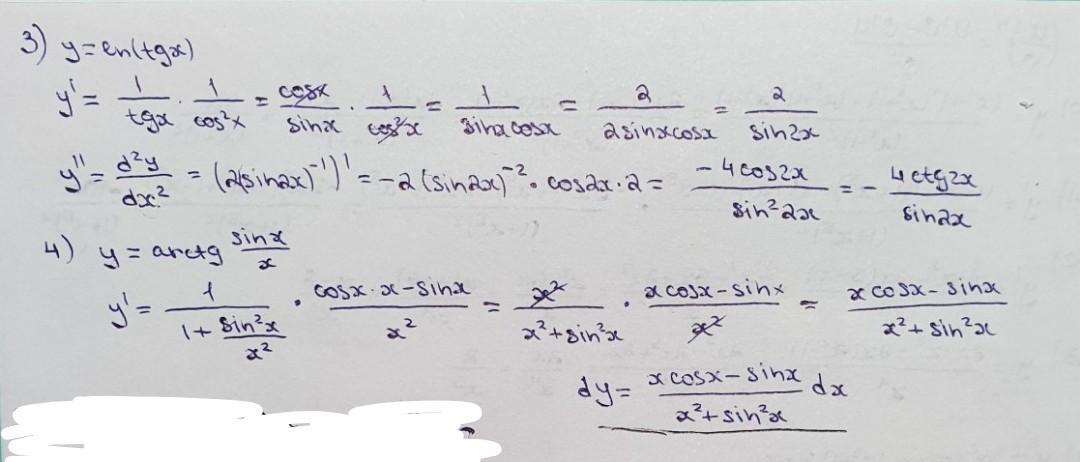 3) y = ln(tgx)
y' = 1/tgx · 1/cos²x = cosx/sinx · 1/cos²x = 1/sinxcosx = 2/2sinxcosx = 2/sin2x
y'' = d²y/dx² = (2(sin2x)⁻¹)' = -2(sin2x)⁻² · cos2x · 2 = -4cos2x/sin²2x = - 4ctg2x/sin2x
4) y = arctg sinx/x
y' = 1/(1 + sin²x/x²) · (cosx · x - sinx)/x² = x²/(x² + sin²x) · (xcosx - sinx)/x² = (xcosx - sinx)/(x² + sin²x)
dy = (xcosx - sinx)/(x² + sin²x) dx